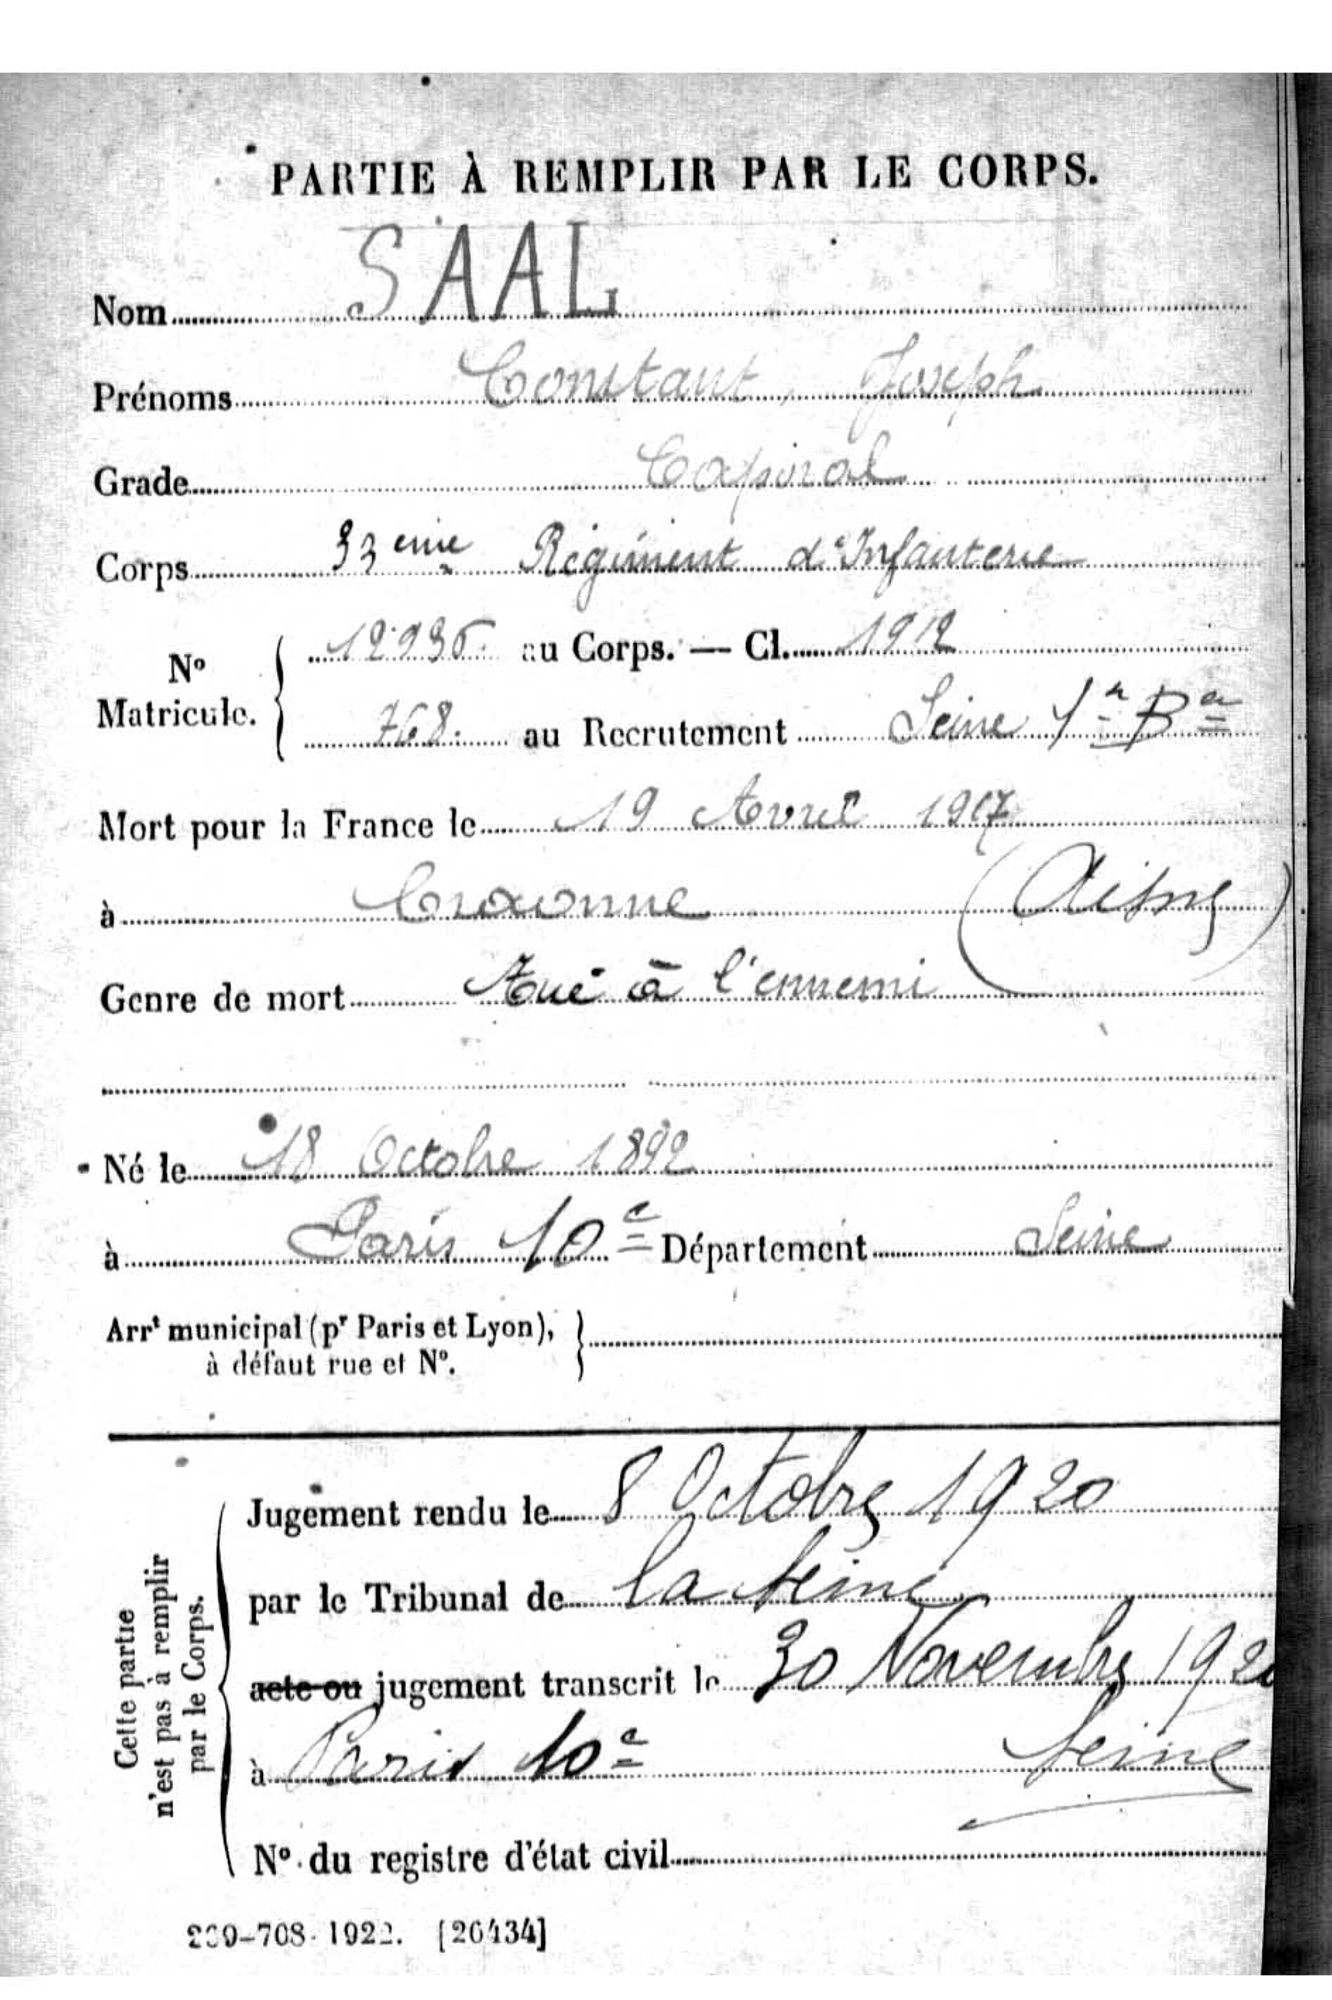 PARTIE À REMPLIR PAR LE CORPS.
Nom SAAL
Prénoms Constant, Joseph
Grade Caporal
Corps 33eme Régiment d'Infanterie
No Matricule. 12936 au Corps. — Cl. 1912
768. au Recrutement Seine 1er Bau
Mort pour la France le 19 Avril 1917
à Craonne (Aisne)
Genre de mort Tué à l'ennemi
Né le 18 Octobre 1892
à Paris 10e Département Seine
Arrt municipal (pr Paris et Lyon),
à défaut rue et No.
Cette partie
n'est pas à remplir
par le Corps.
Jugement rendu le 8 Octobre 1920
par le Tribunal de la Seine
acte ou jugement transcrit le 30 Novembre 1920
à Paris 10e Seine
No du registre d'état civil
-708-1922. [26434]